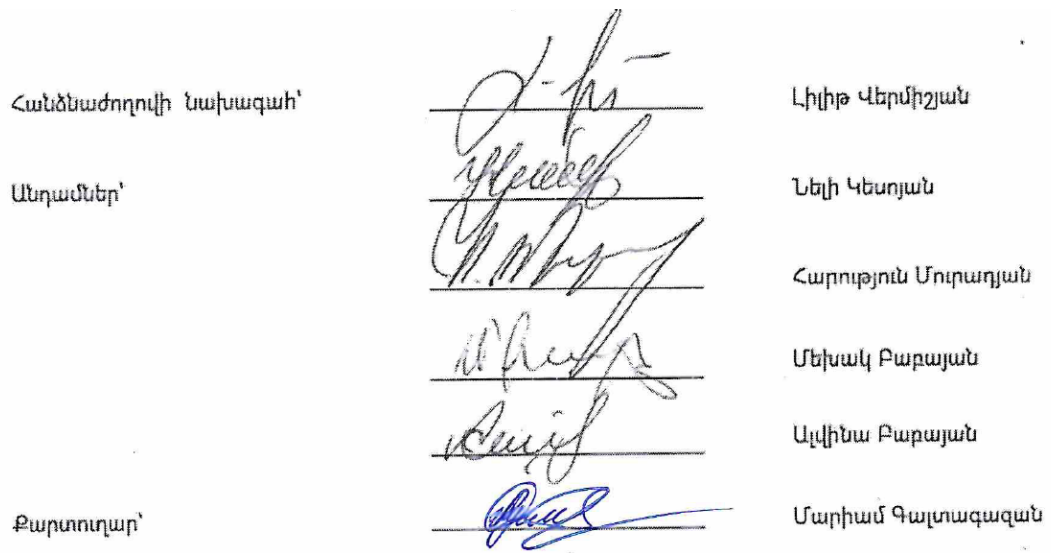 Հանձնաժողովի նախագահ՝ Լիլիթ Վերմիշյան
Անդամներ՝ Նելի Կեսոյան
Հարություն Մուրադյան
Մեխակ Բաբայան
Ալվինա Բաբայան
Քարտուղար՝ Մարիամ Գալտագազան